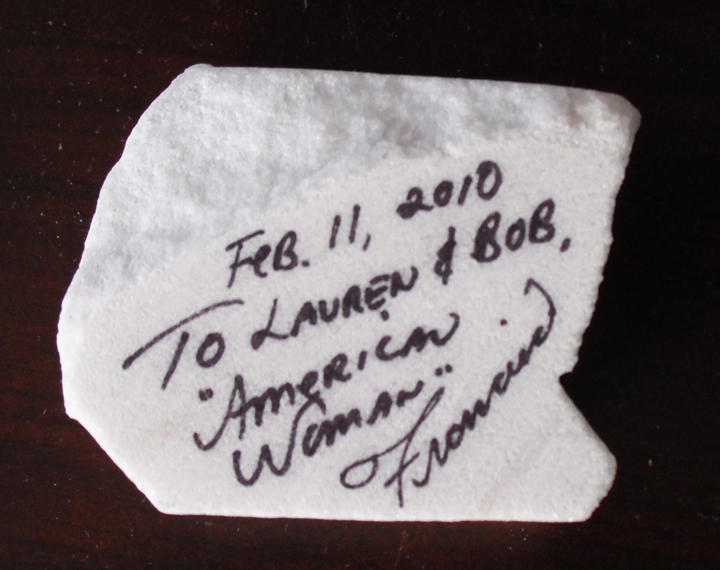 FeB. 11, 2010
To LAUREN & BOB,
"AmeRICAN
WOMAN"